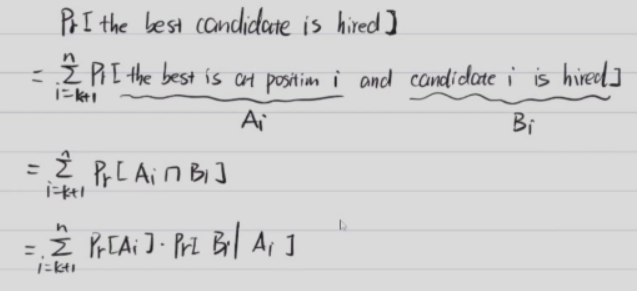 Pr[ the best candidate is hired ]
= ∑_{i=k+1}^{n} Pr[ the best is at position i and candidate i is hired ]
A_i B_i
= ∑_{i=k+1}^{n} Pr[ A_i ∩ B_i ]
= ∑_{i=k+1}^{n} Pr[A_i] · Pr[ B_i | A_i ]